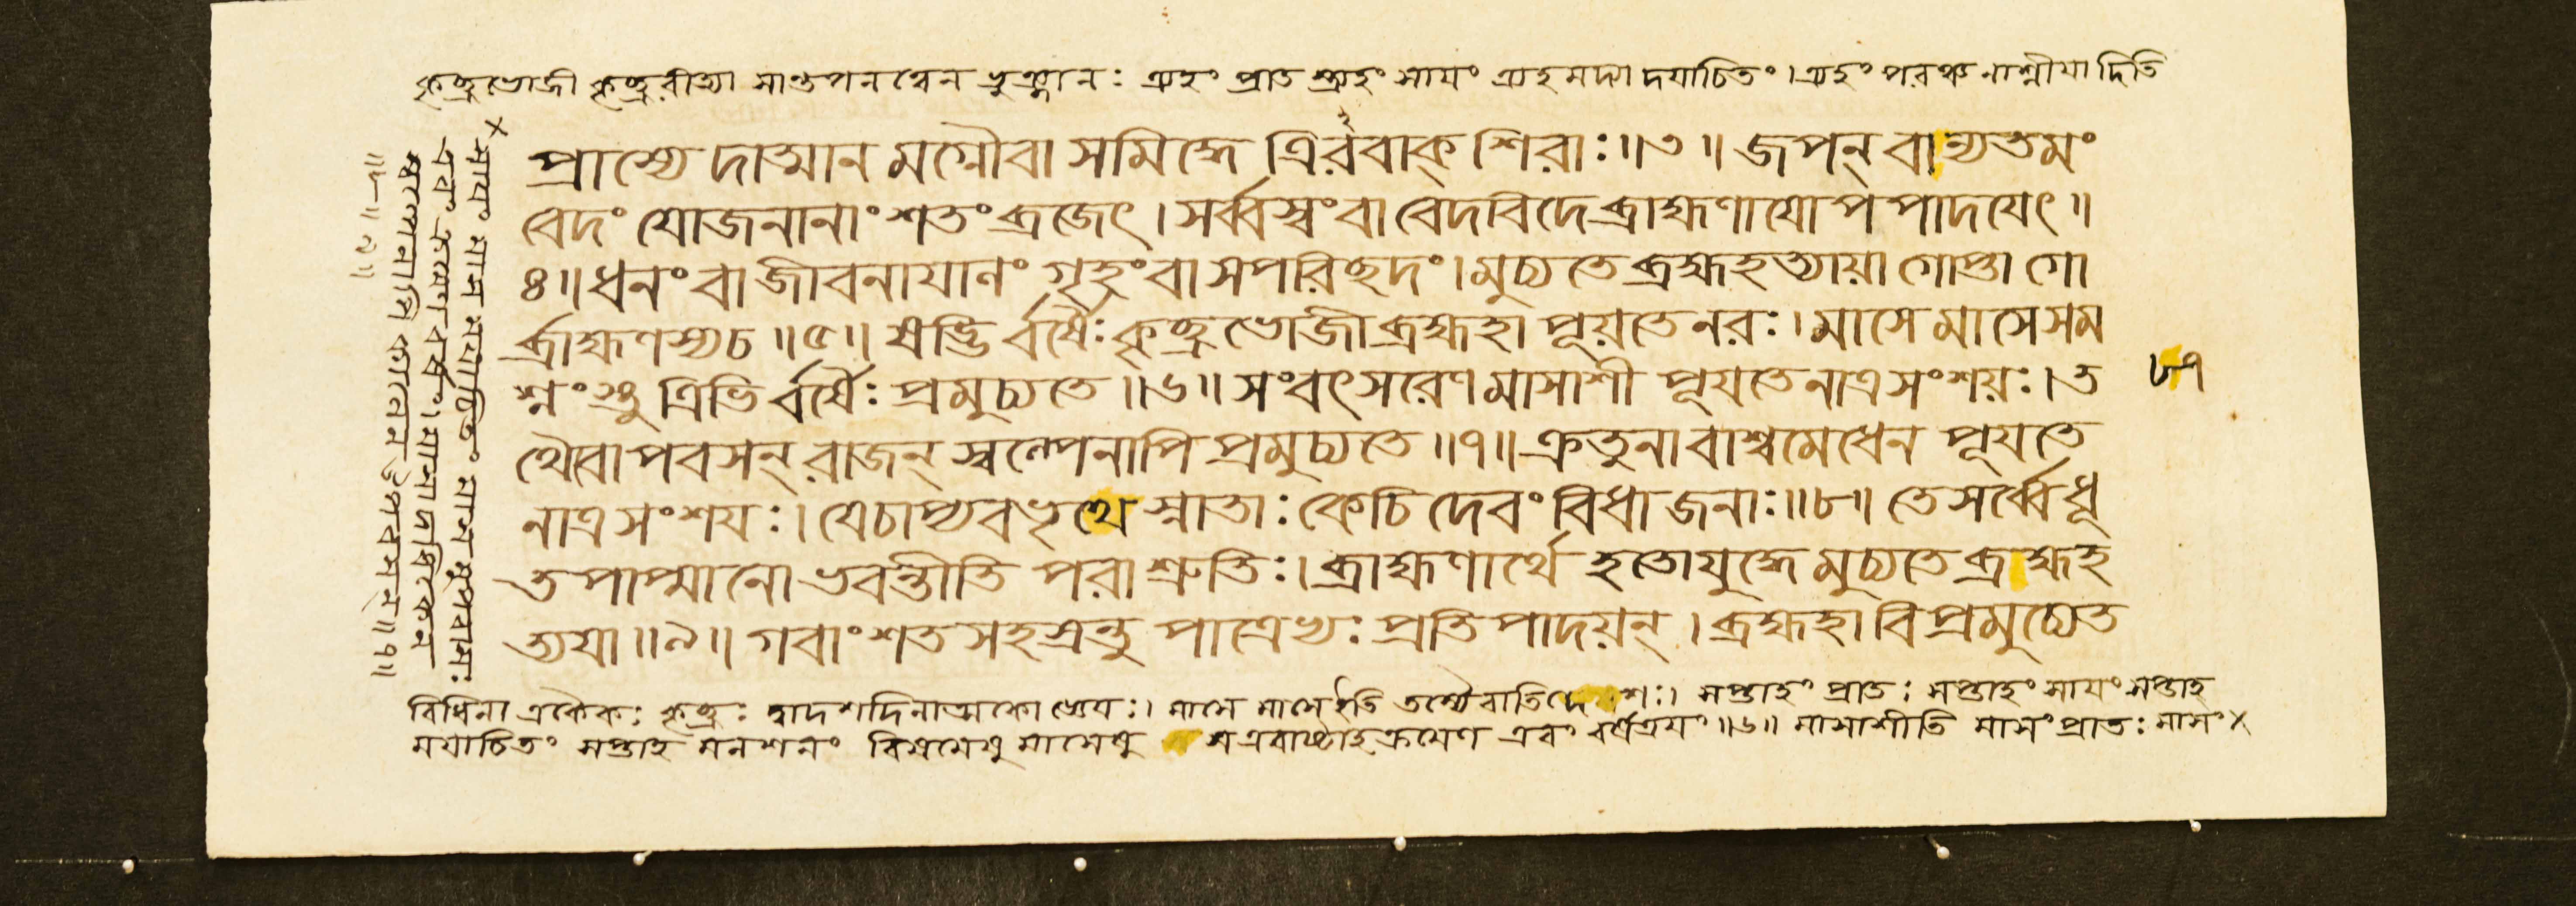 কৃচ্ছ্রভোজী কৃচ্ছ্ররীত্যা সান্তপনত্বেন ভুঞ্জানঃ ত্র্যহং প্রাত স্ত্র্যহং সায়ং ত্র্যহমদ্যা দযাচিতং। ত্র্যহং পরঞ্চ নাশ্নীয়া দিতি
প্রাস্যে দাত্মান মগ্নৌবা সমিদ্ধে ত্রিরর্বাক্ শিরাঃ॥৩॥ জপন্ বান্যতমং
বেদং যোজনানাং শতং ব্রজেৎ। সর্ব্বস্বং বা বেদবিদে ব্রাহ্মণাযোপপাদযেৎ॥
৪॥ ধনং বা জীবনাযাণং গৃহং বা সপরিচ্ছদং। মুচ্যতে ব্রহ্মহত্যায়া গোপ্তা গো
র্ব্রাহ্মণস্য চ॥৫॥ ষড্ভি র্বর্ষৈঃ কৃচ্ছ্রভোজী ব্রহ্মহা পূয়তে নরঃ। মাসে মাসে সম
শ্নংস্তু ত্রিভি র্বর্ষৈঃ প্রমুচ্যতে॥৬॥ সংবৎসরেণ মাসাশী পূযতে নাত্র সংশয়ঃ। ত
৮৭
থৈবাপবসন্ রাজন্ স্বল্পেনাপি প্রমুচ্যতে॥৭॥ ক্রতুনা বাশ্বমেধেন পূযতে
নাত্র সংশযঃ। যে চাপ্যবভৃথে স্নাতাঃ কেচি দেবংবিধা জনাঃ॥৮॥ তে সর্ব্বে ধূ
ত পাপ্মানো ভবন্তীতি পরা শ্রুতিঃ। ব্রাহ্মণার্থে হতোযুদ্ধে মুচ্যতে ব্রাহ্মহ
ত্যযা॥৯॥ গবাং শতসহস্রন্তু পাত্রেভ্যঃ প্রতিপাদয়ন্। ব্রহ্মহা বিপ্রমুচ্যেত
বিধিনা একৈকঃ কৃচ্ছ্রঃ দ্বাদশদিনাত্মকো জ্ঞেযঃ। মাসে মাসে ইতি তস্যৈবাতিদেশঃ। সপ্তাহং প্রাতঃ সপ্তাহং সাযং সপ্তাহ
মযাচিতং সপ্তাহ মনশনং মাসেষু এবং বর্ষত্রযং॥৬॥ মাসাশীতি মাসং প্রাতঃ মাসং ×
× সাযং মাস মযাচিতং মাসমুপবাসঃ
এবং ক্রমেণ বর্ষং।
স্বল্পেনাপি কালেন উপবসন্॥৭॥
॥৮॥৯॥